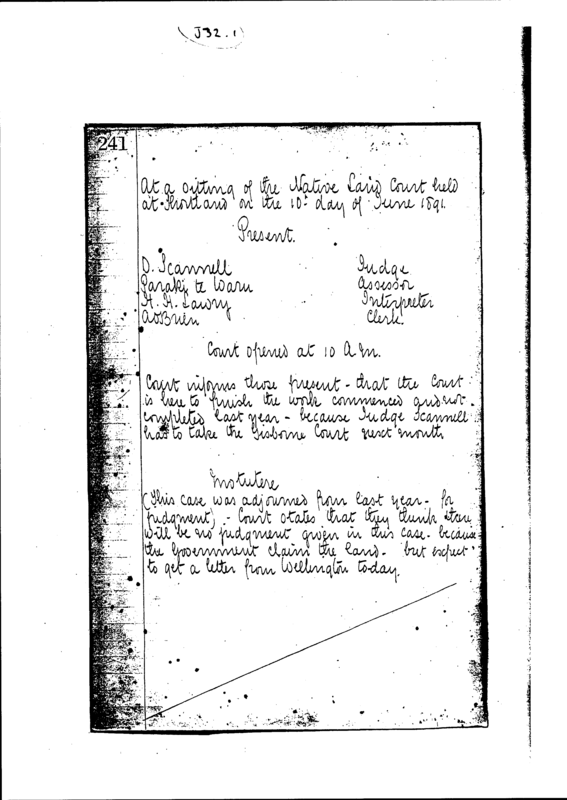 J32.1
241
At a sitting of the Native Land Court held
at Shortland on the 10th day of June 1891.
Present.
D. Scannell Judge
te Waru Assessor
H. H. Lawry Interpreter
A. O'Brien Clerk.
Court opened at 10 A.m.
Court informs those present - that the Court
is here to finish the work commenced and not
completed last year - because Judge Scannell
has to take the Gisborne Court next month
(This case was adjourned from last year - for
judgment) - Court states that they think there
will be no judgment given in this case - because
the Government claim the land - but expect
to get a letter from Wellington today.